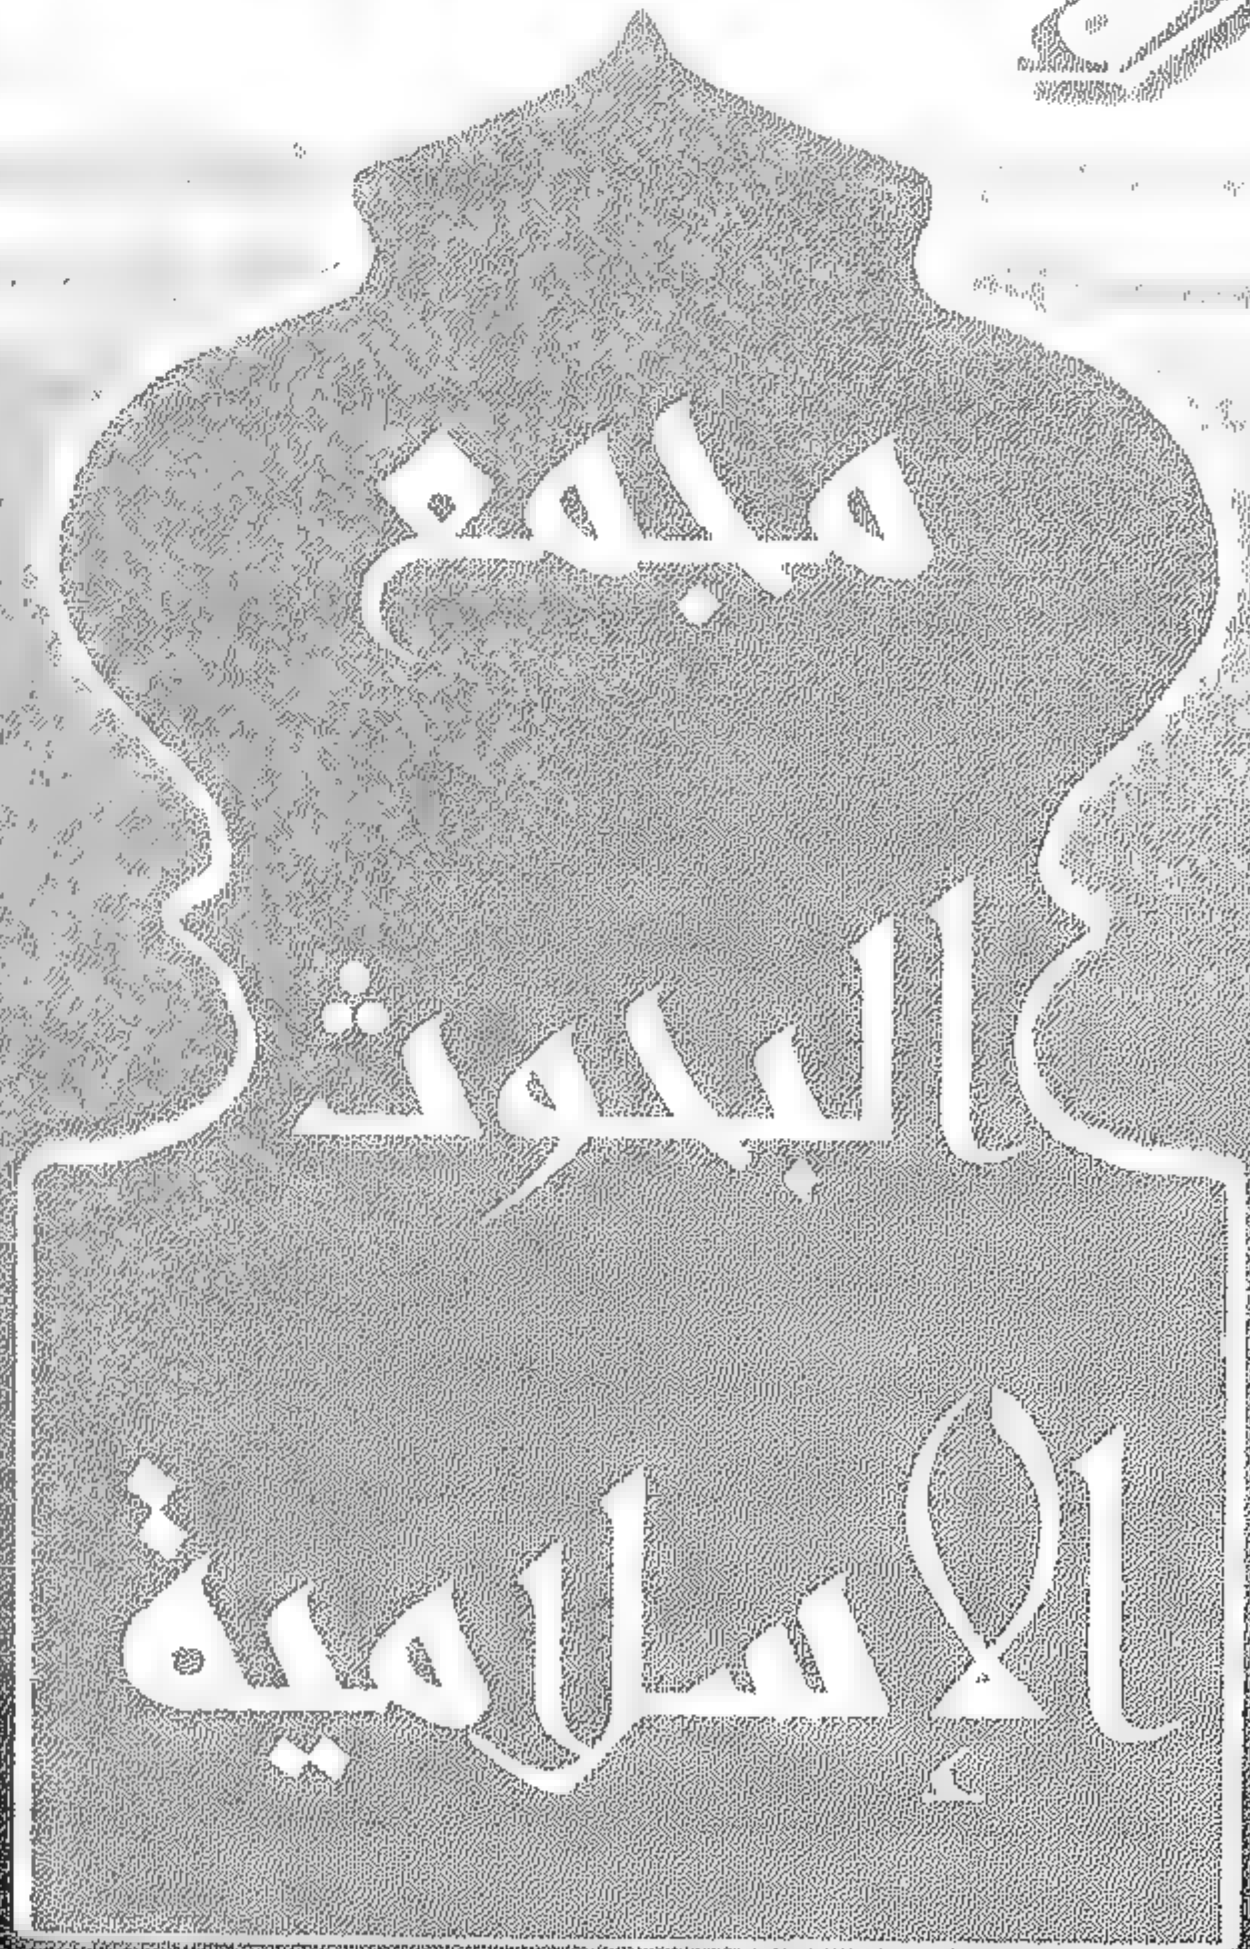 مجمع
البحوث
الإسلامية